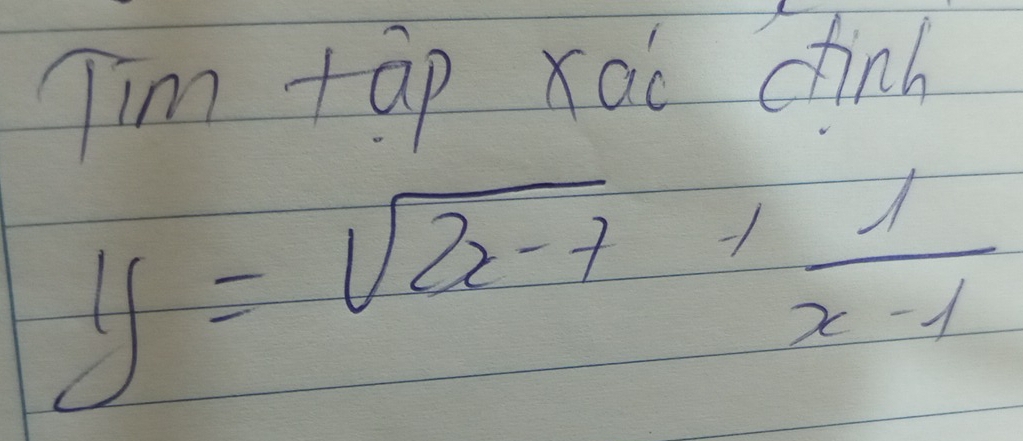 Tìm tập xác định
y = √(2x - 7) + 1/(x - 1)